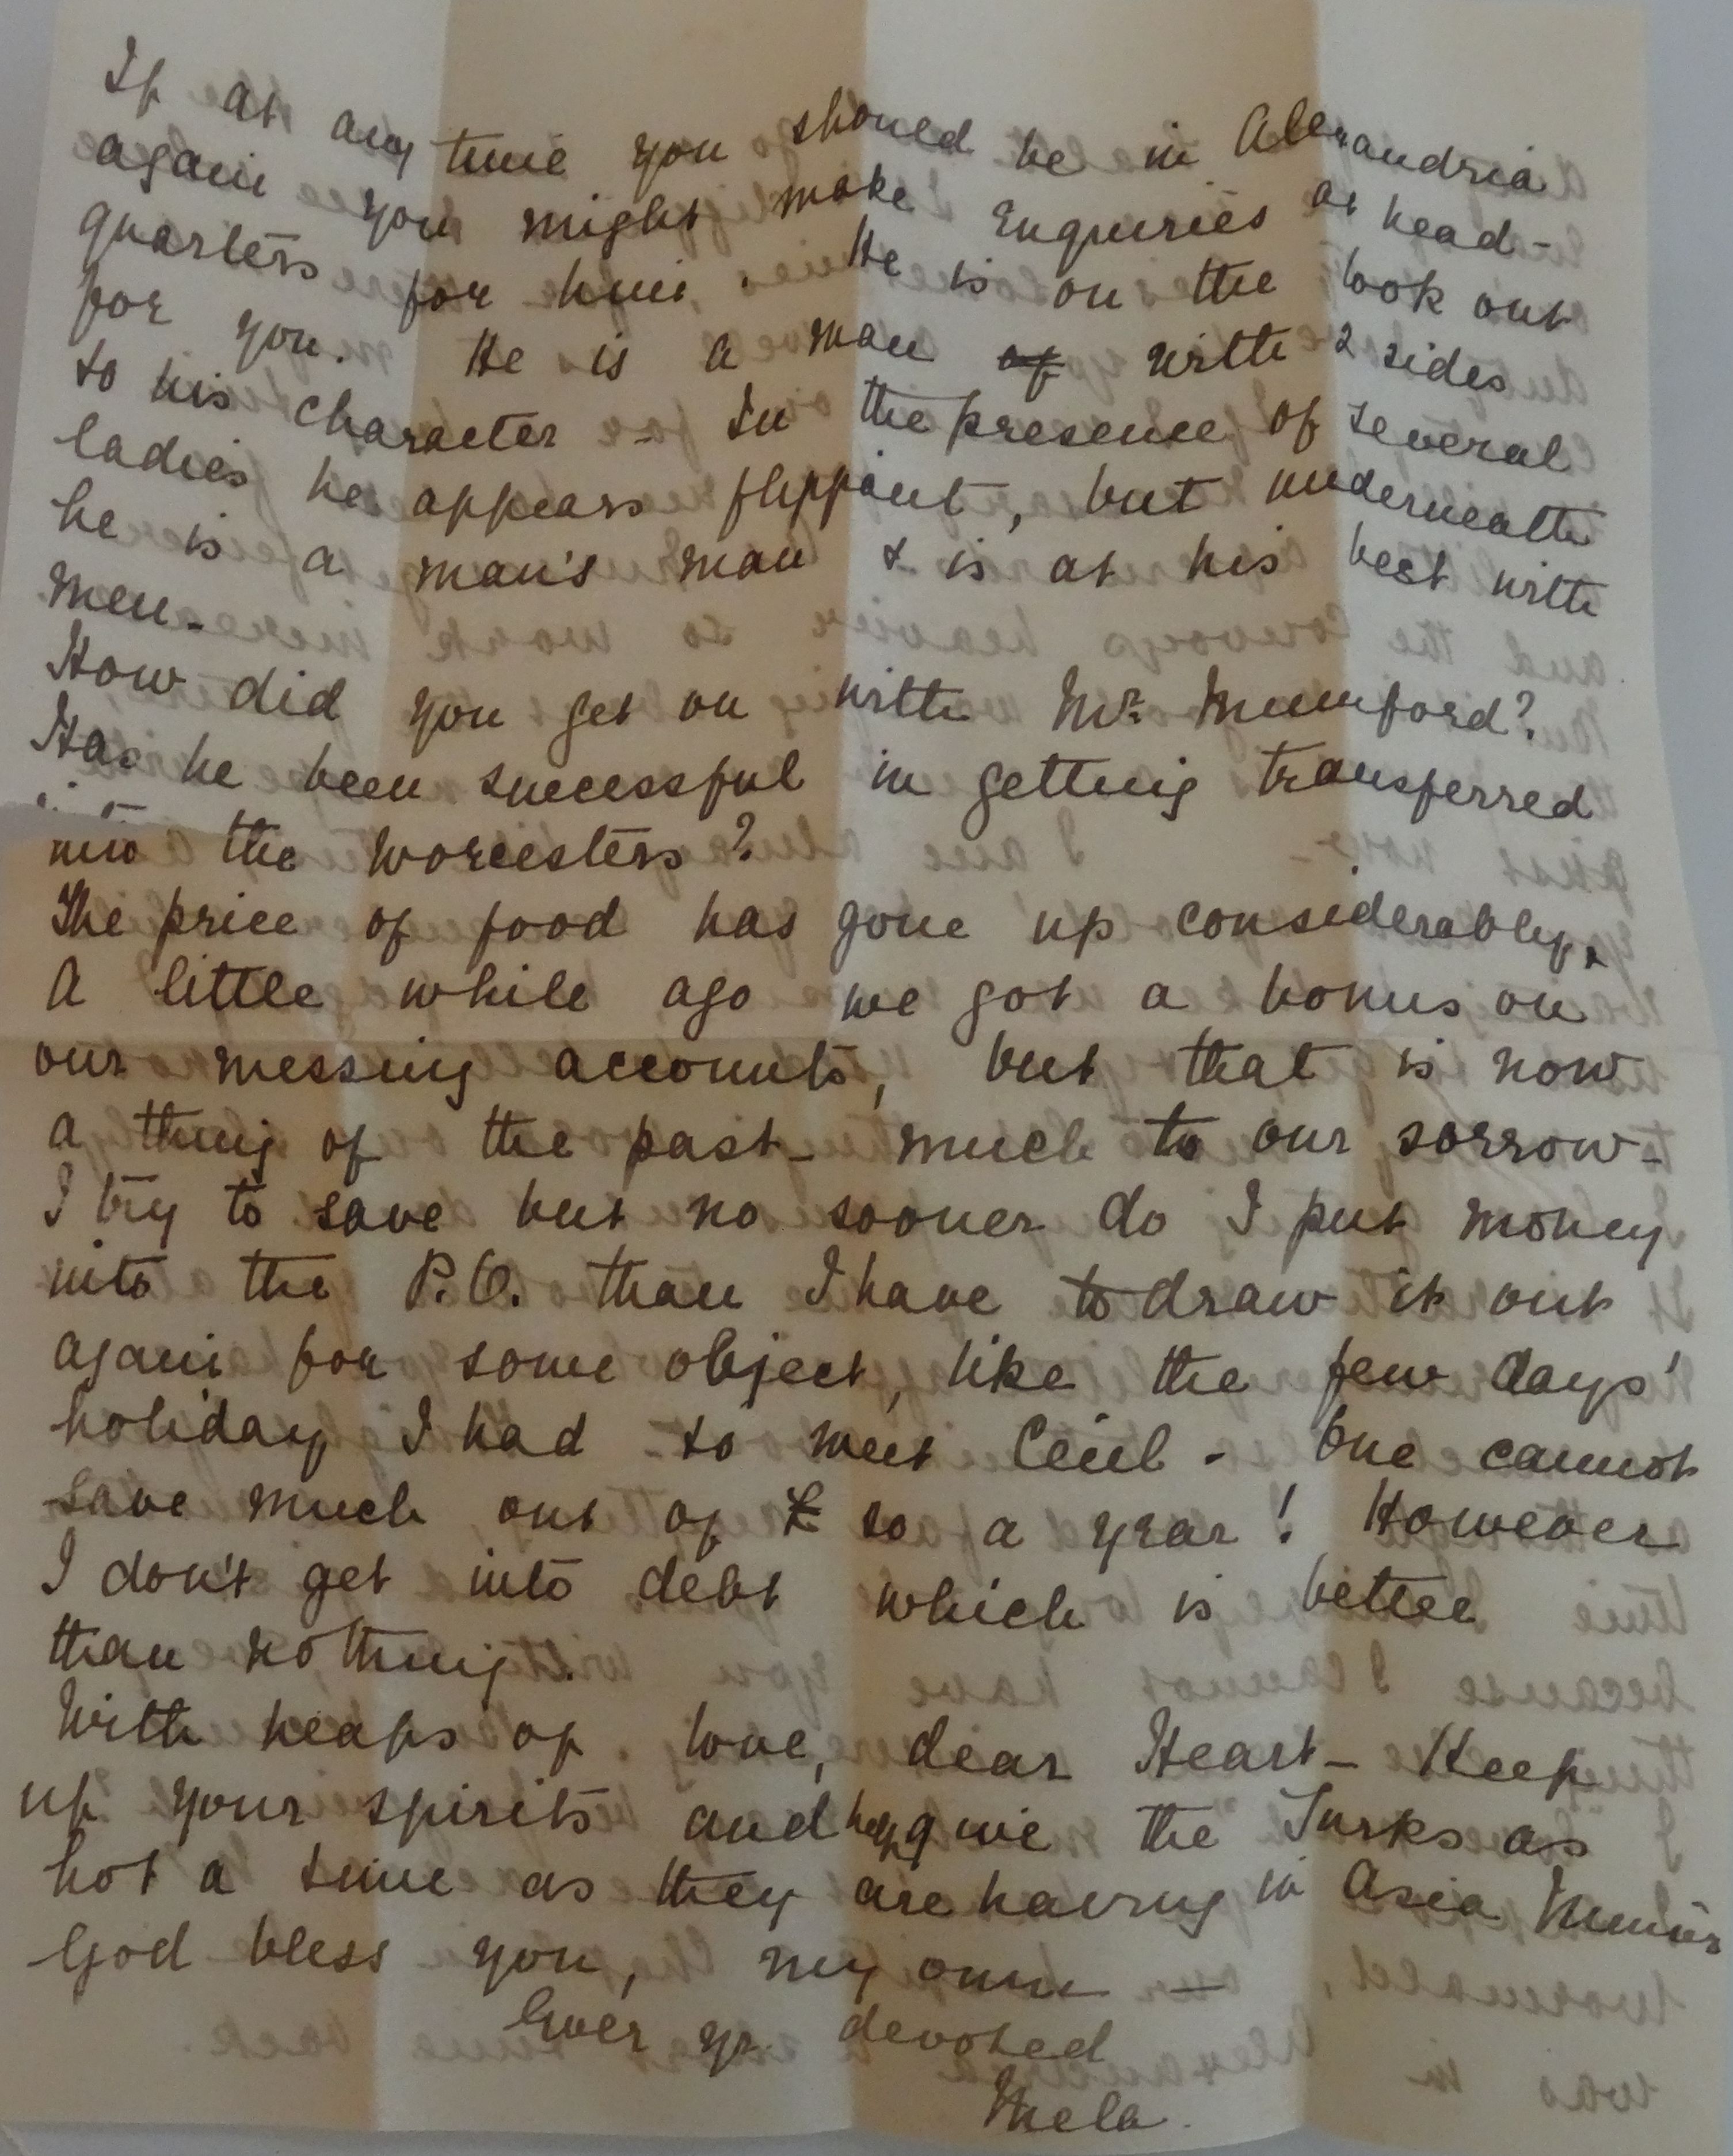 If at any time you should be in Alexandria
again you might make enquiries at head-
quarters for him. He is on the look out
for you. He is a man of with 2 sides
to his character - In the presence of several
ladies he appears flippant, but underneath
he is a man's man & is at his best with
men -
How did you get on with Mr. Mumford?
Has he been successful in getting transferred
into the Worcesters?
The price of food has gone up considerably,
A little while ago we got a bonus on
our messing accounts, but that is now
a thing of the past - much to our sorrow -
I try to save but no sooner do I put money
into the P.O. than I have to draw it out
again for some object, like the few days'
holiday I had to meet Cecil - One cannot
save much out of £ 50 a year! However
I don't get into debt which is better
than nothing.
With heaps of love, dear Heart - Keep
up your spirits and give the Turks as
hot a time as they are having in Asia Minor
God bless you, my own -
Ever yr. devoted
Thela.